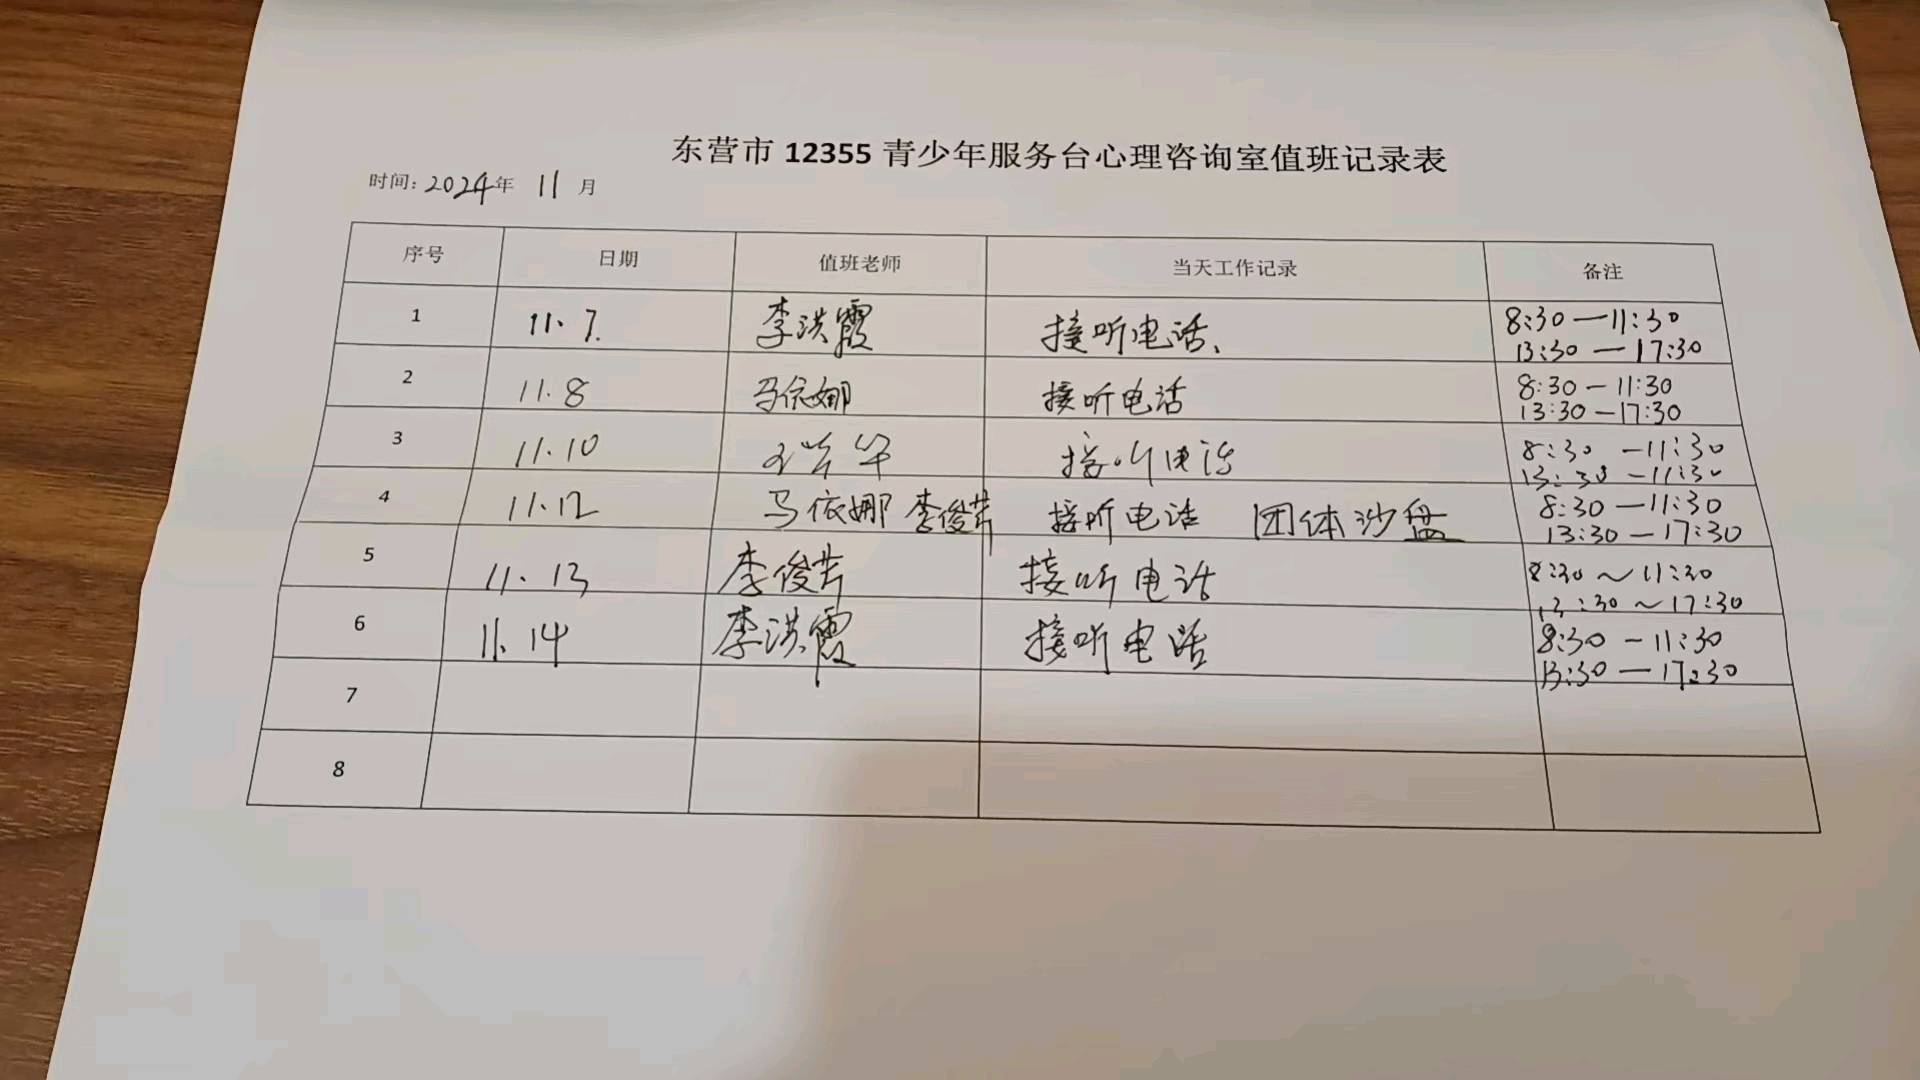 东营市 12355 青少年服务台心理咨询室值班记录表
时间: 2024年 11 月
序号 日期 值班老师 当天工作记录 备注
1 11.7. 李洪霞 接听电话、 8:30—11:30
13:30—17:30
2 11.8 马依娜 接听电话 8:30—11:30
13:30—17:30
3 11.10 接听电话 8:30—11:30
13:30—11:30
4 11.12 马依娜 李俊芳 接听电话 团体沙盘 8:30—11:30
13:30—17:30
5 11.13 李俊芳 接听电话 8:30~11:30
13:30~17:30
6 11.14 李洪霞 接听电话 8:30—11:30
13:30—17:30
7
8